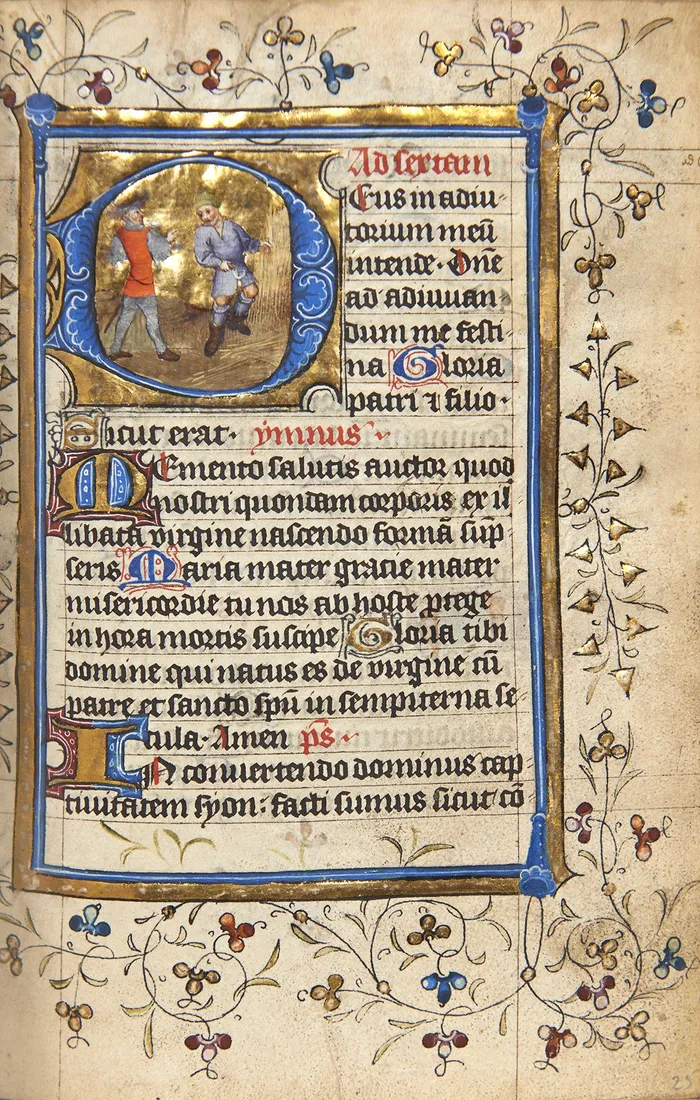 Ad sextam
Eus in adiu-
torium meū
intende. Dn̄e
ad adiuuan-
dum me festi-
na Gloria
patri ⁊ filio.
Sicut erat. ymnus
MEmento salutis auctor quod
nostri quondam corporis ex il
libata virgine nascendo formā sūp
seris Maria mater gracie mater
misericordie tu nos ab hoste ꝓtege
in hora mortis suscipe Gloria tibi
domine qui natus es de virgine cū
patre et sancto spū in sempiterna se-
cula. Amen p̄s.
IN conuertendo dominus cap
tiuitatem syon: facti sumus sicut cō